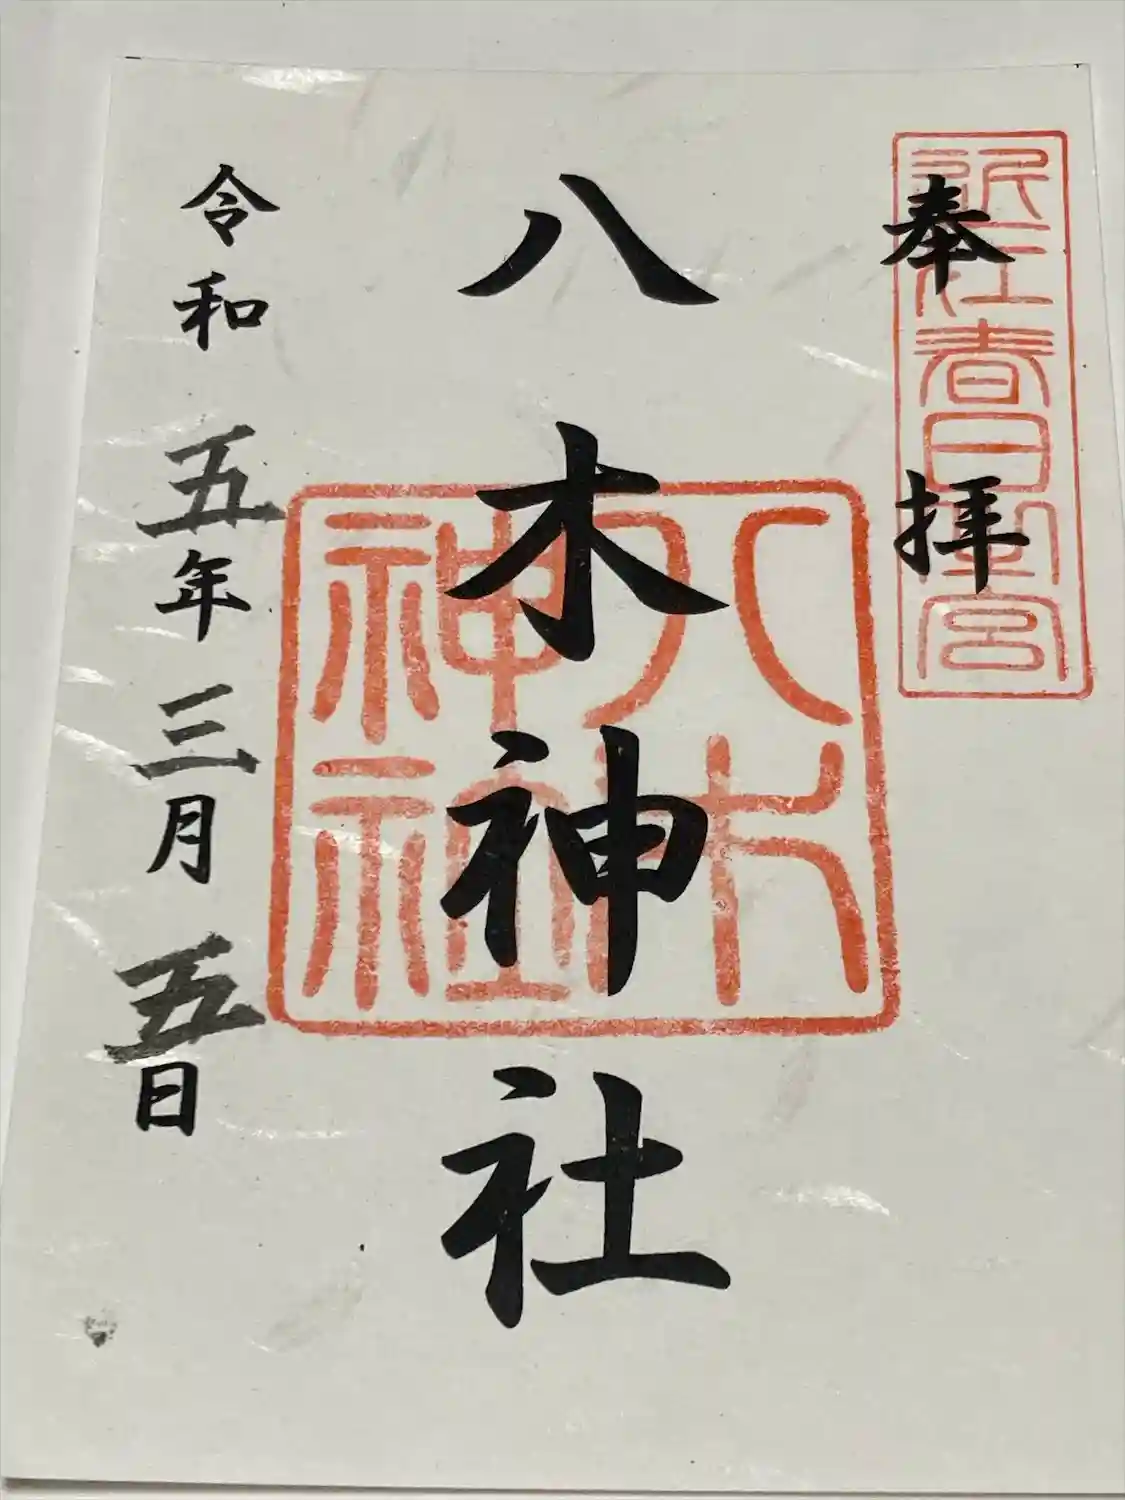 奉拝
近江春日宮
八木神社
八木神社
令和五年三月五日